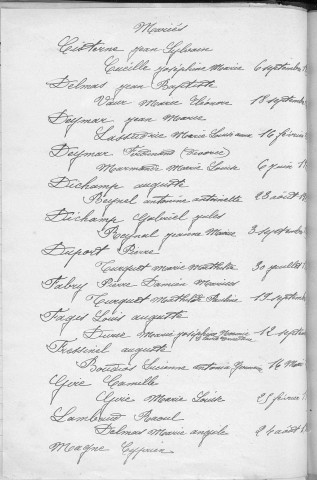 Mariés
Cisterne jean Sylvain
Cueille joséphine Marie 6 septembre
Delmas jean Baptiste
Vaur Marie Léonne 18 septembre
Deymar jean Marie
Marie Louise 16 février
Deymar Ferdinand (Divorcé)
Marmande Marie Louise 6 juin
Dichamp auguste
Reynel antoine antoinette 23 août
Dichamp Gabriel jules
Reynal jeanne Marie 3 septembre
Duport Pierre
Turquet marie Mathilde 30 juillet
Fabry Pierre Damien Marius
Turquet Mathilde Pauline 17 septembre
Fages Louis auguste
Marie joséphine 12 septembre
Fressinel auguste
Lucienne antonia 14 Mai
Givé Camille
Givé Marie Louise 25 février
Lambert Raoul
Delmas Marie angèle 24 août
Magne Cyprien